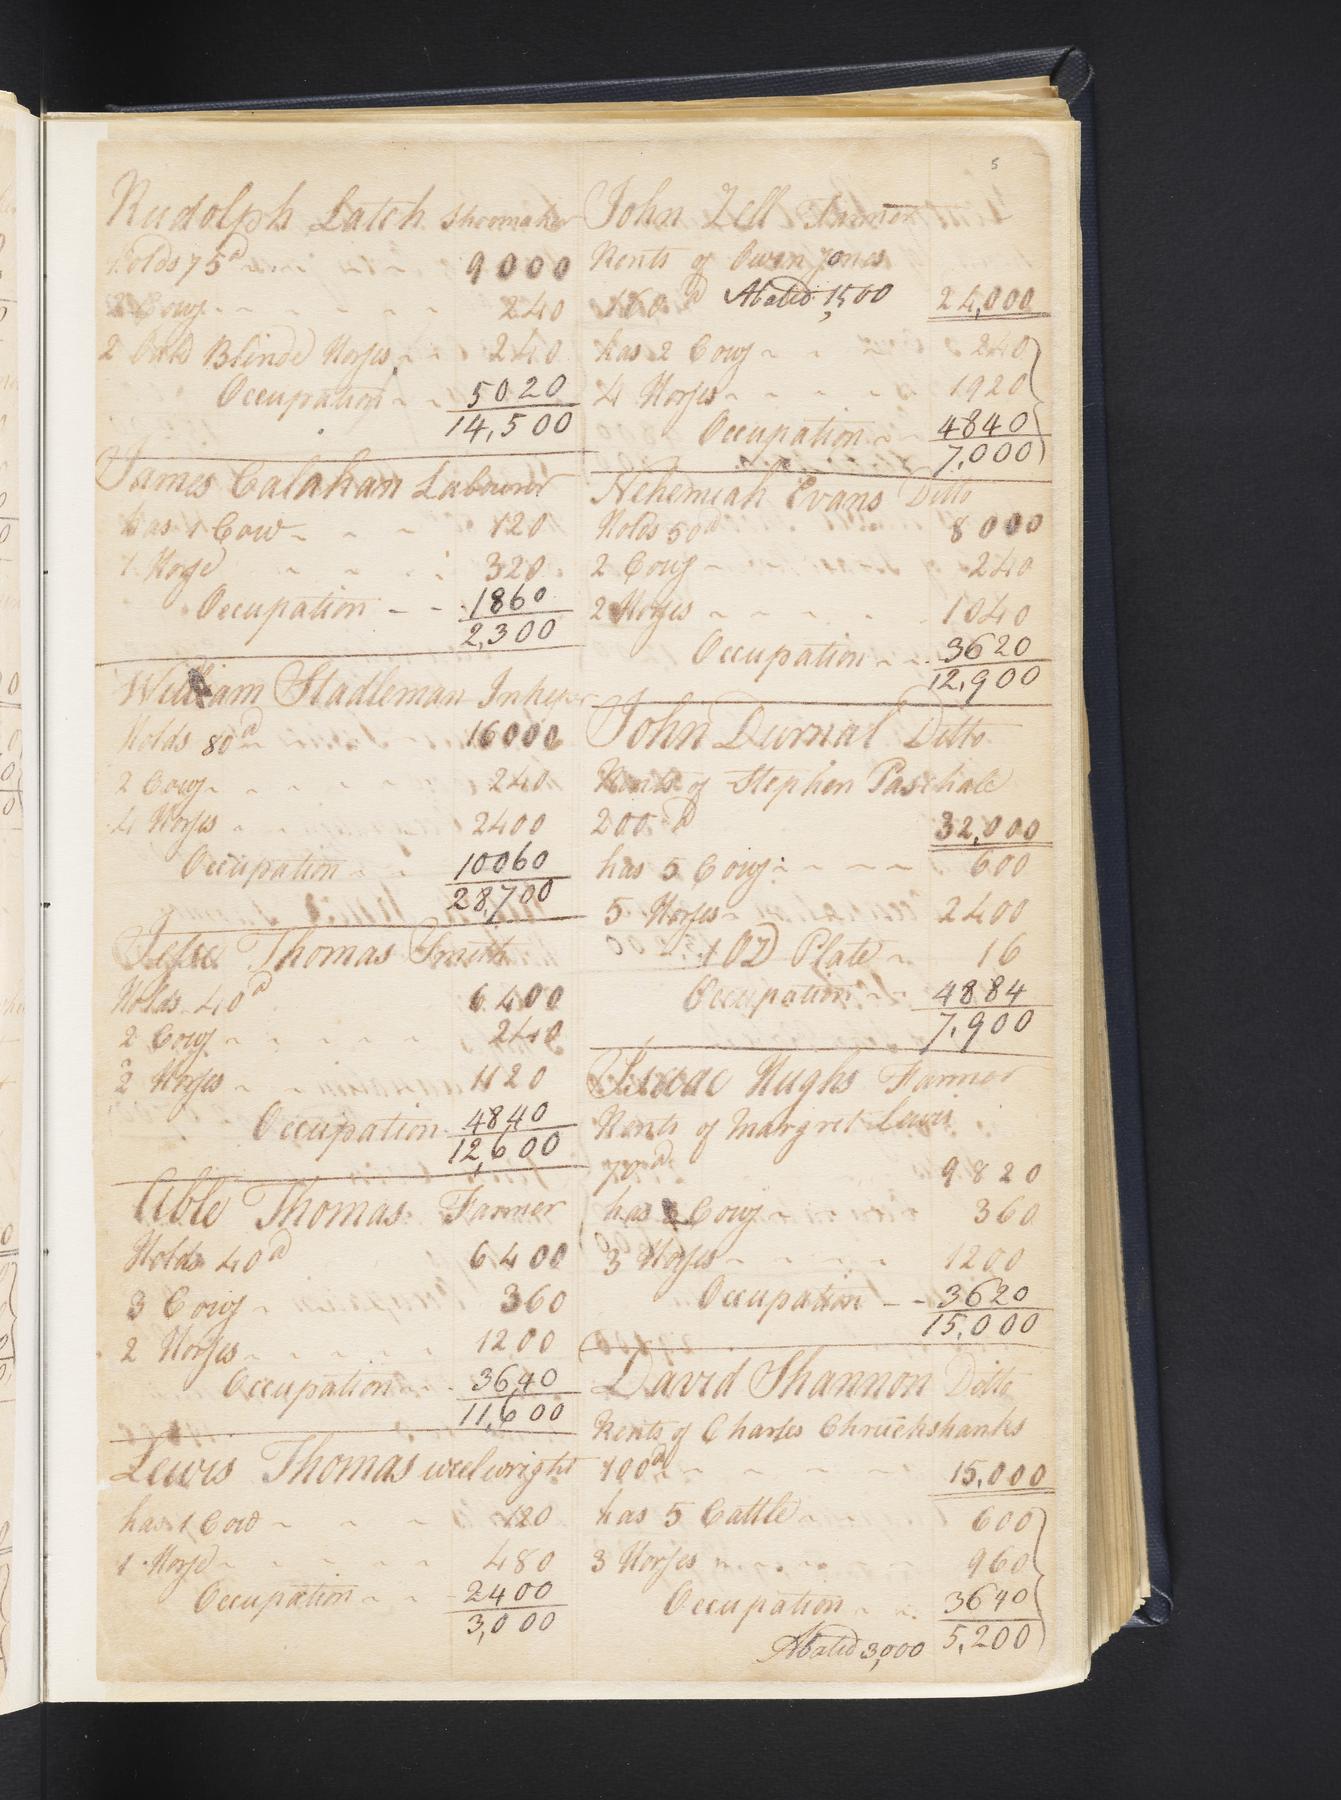 5
Rudolph Latch Shoemaker
Holds 75a 9000
2 Cows 240
2 Ould Blinde Horses 240
Occupation 5020
14,500
James Calahan Labourer
has 1 Cow 120
1 Horse 320
Occupation 1860
2,300
William Stadleman Inkeper
Holds 80a 16000
2 Cows 240
4 Horses 2400
Occupation 10060
28,700
Jesse Thomas Smith
Holds 40a 6400
2 Cows 240
2 Horses 1120
Occupation 4840
12,600
Able Thomas Farmer
Holds 40a 6400
3 Cows 360
2 Horses 1200
Occupation 3640
11,600
Lewis Thomas weelwright
has 1 Cow 120
1 Horse 480
Occupation 2400
3,000
John Zell Farmer
Rents of Owen Jones
160a Abated 1,500 24,000
has 2 Cows 240
4 Horses 1920
Occupation 4840
7,000
Nehemiah Evans Ditto
Holds 50a 8000
2 Cows 240
2 Horses 1040
Occupation 3620
12,900
John Durnal Ditto
Rents of Stephen Paschale
200a 32,000
has 5 Cows 600
5 Horses 2400
1 OZ Plate 16
Occupation 4884
7,900
Isaac Hughs Farmer
Rents of Margret Lewis
70a 9820
has 3 Cows 360
3 Horses 1200
Occupation 3620
15,000
David Shannon Ditto
Rents of Charles Chruckshanks
100a 15,000
has 5 Cattle 600
3 Horses 960
Occupation 3640
Abated 3,000 5,200